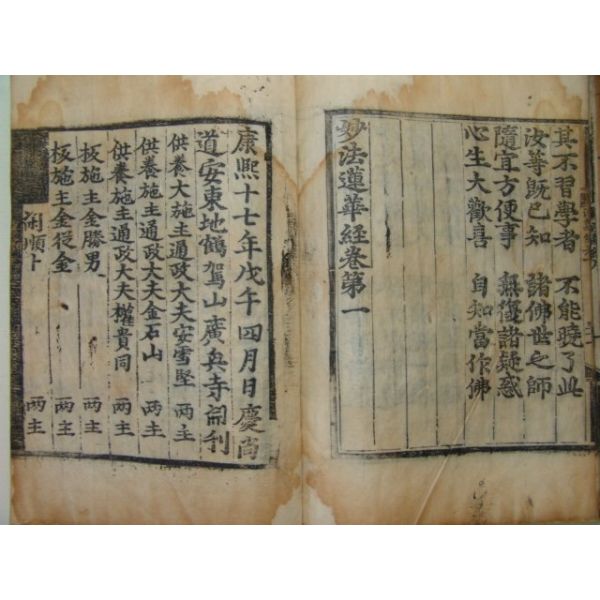 其不習學者 不能曉了此
汝等既已知 諸佛世之師
隨宜方便事 無復諸疑惑
心生大歡喜 自知當作佛
妙法蓮華経卷第一
康熙十七年戊午四月日慶尚
道安東地鶴駕山廣兵寺開刊
供養大施主通政大夫安雪堅 兩主
供養施主通政大夫金石山 兩主
供養施主通政大夫權貴同 兩主
板施主金勝男 兩主
板施主金從金 兩主